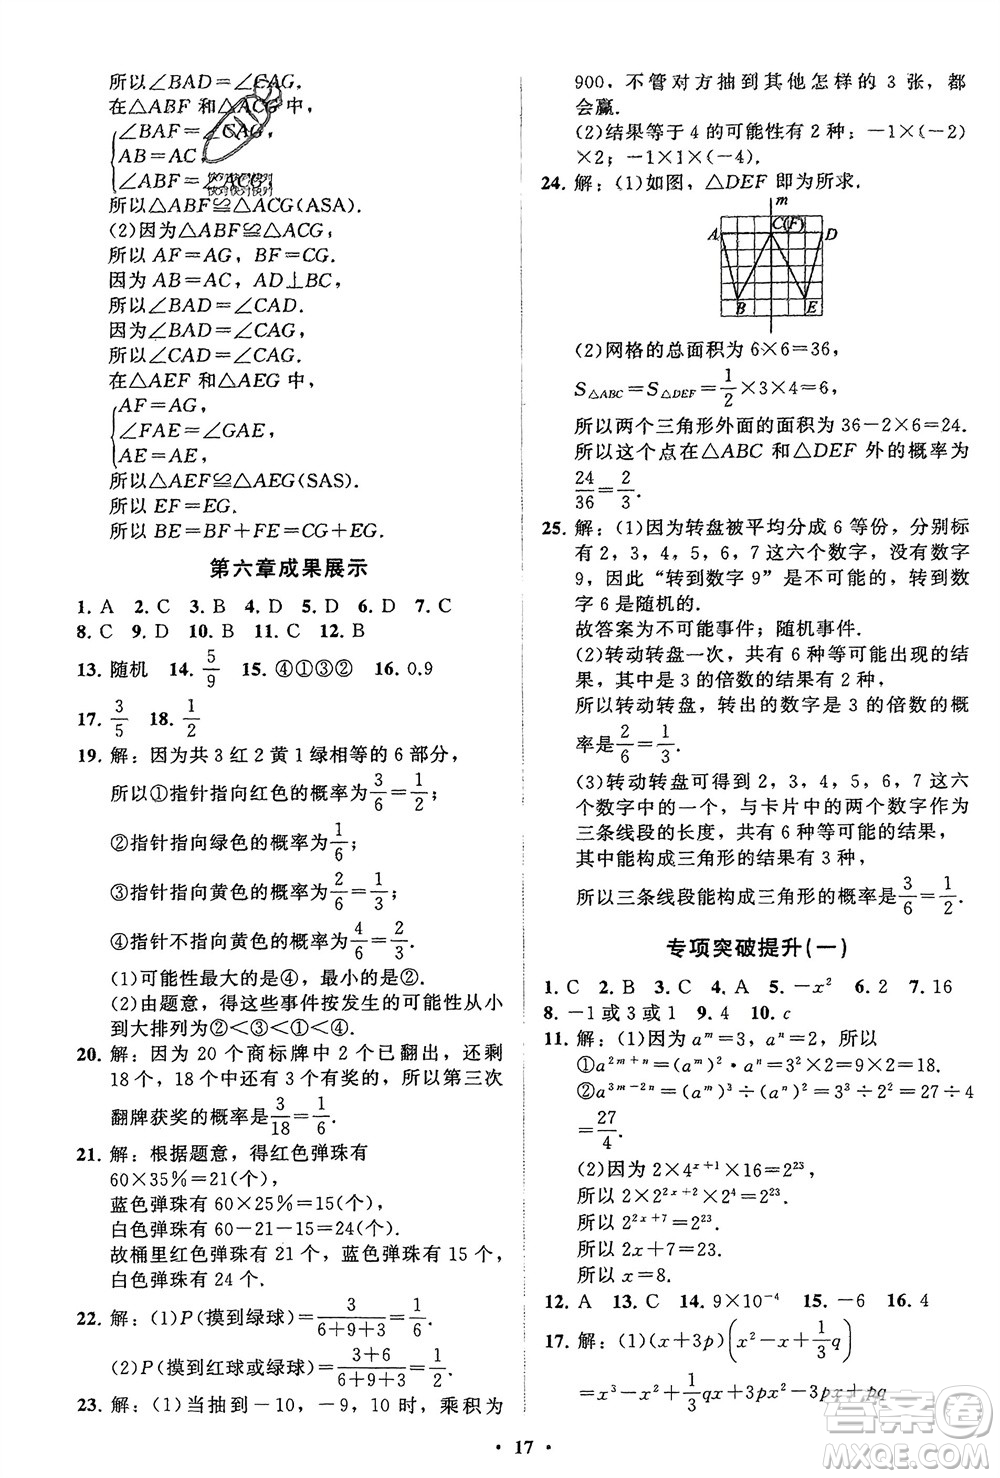 所以∠BAD=∠CAG.
在△ABF 和△ACG 中,
∠BAF=∠CAG,
AB=AC,
∠ABF=∠ACG,
所以△ABF≌△ACG(ASA).
(2)因为△ABF≌△ACG,
所以 AF=AG, BF=CG.
因为 AB=AC, AD⊥BC,
所以∠BAD=∠CAD.
因为∠BAD=∠CAG,
所以∠CAD=∠CAG.
在△AEF 和△AEG 中,
AF=AG,
∠FAE=∠GAE,
AE=AE,
所以△AEF≌△AEG(SAS).
所以 EF=EG.
所以 BE=BF+FE=CG+EG.
第六章成果展示
1. A 2. C 3. B 4. D 5. D 6. D 7. C
8. C 9. D 10. B 11. C 12. B
13. 随机 14. 5/9 15. ④①③② 16. 0.9
17. 3/5 18. 1/2
19. 解:因为共 3 红 2 黄 1 绿相等的 6 部分,
所以①指针指向红色的概率为3/6=1/2;
②指针指向绿色的概率为1/6;
③指针指向黄色的概率为2/6=1/3;
④指针不指向黄色的概率为4/6=2/3.
(1)可能性最大的是④,最小的是②.
(2)由题意,得这些事件按发生的可能性从小
到大排列为②<③<①<④.
20. 解:因为 20 个商标牌中 2 个已翻出,还剩
18 个,18 个中还有 3 个有奖的,所以第三次
翻牌获奖的概率是3/18=1/6.
21. 解:根据题意,得红色弹珠有
60×35%=21(个),
蓝色弹珠有 60×25%=15(个),
白色弹珠有 60-21-15=24(个).
故桶里红色弹珠有 21 个,蓝色弹珠有 15 个,
白色弹珠有 24 个.
22. 解:(1)P(摸到绿球)=3/(6+9+3)=1/6.
(2)P(摸到红球或绿球)=(3+6)/(6+9+3)=1/2.
23. 解:(1)当抽到-10,-9,10 时,乘积为
900,不管对方抽到其他怎样的 3 张,都
会赢.
(2)结果等于 4 的可能性有 2 种:-1×(-2)
×2;-1×1×(-4).
24. 解:(1)如图,△DEF 即为所求.
m
A C(F) D
B E
(2)网格的总面积为 6×6=36,
S△ABC=S△DEF=1/2×3×4=6,
所以两个三角形外面的面积为 36-2×6=24.
所以这个点在△ABC 和△DEF 外的概率为
24/36=2/3.
25. 解:(1)因为转盘被平均分成 6 等份,分别标
有 2,3,4,5,6,7 这六个数字,没有数字
9,因此“转到数字 9”是不可能的,转到数
字 6 是随机的.
故答案为不可能事件;随机事件.
(2)转动转盘一次,共有 6 种等可能出现的结
果,其中是 3 的倍数的结果有 2 种,
所以转动转盘,转出的数字是 3 的倍数的概率
是2/6=1/3.
(3)转动转盘可得到 2,3,4,5,6,7 这六
个数字中的一个,与卡片中的两个数字作为
三条线段的长度,共有 6 种等可能的结果,
其中能构成三角形的结果有 3 种,
所以三条线段能构成三角形的概率是3/6=1/2.
专项突破提升(一)
1. C 2. B 3. C 4. A 5. -x² 6. 2 7. 16
8. -1 或 3 或 1 9. 4 10. c
11. 解:(1)因为 aᵐ=3, aⁿ=2, 所以
①a²ᵐ⁺ⁿ=(aᵐ)²·aⁿ=3²×2=9×2=18.
②a³ᵐ⁻²ⁿ=(aᵐ)³÷(aⁿ)²=3³÷2²=27÷4
=27/4.
(2)因为 2×4ˣ⁺¹×16=2²³,
所以 2×2²ˣ⁺²×2⁴=2²³.
所以 2²ˣ⁺⁷=2²³.
所以 2x+7=23.
所以 x=8.
12. A 13. C 14. 9×10⁻⁴ 15. -6 16. 4
17. 解:(1)(x+3p)(x²-x+1/3q)
=x³-x²+1/3qx+3px²-3px+pq
• 17 •
答案圈
MXQE.COM